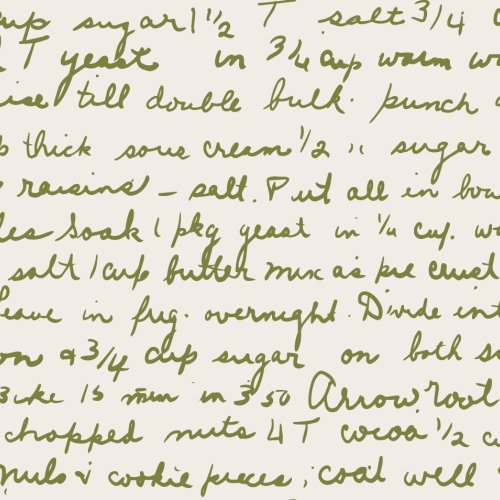 cup sugar 1 1/2 T salt 3/4
T yeast in 3/4 cup warm
rise till double bulk. punch
thick sour cream 1/2 " sugar
raisins - salt. Put all in
Soak 1 pkg yeast in 1/4 cup.
salt 1 cup butter mix as pie crust
Leave in frig. overnight. Divide int
on & 3/4 cup sugar on both
Bake 15 min in 350 Arrowroot
chopped nuts 4 T cocoa 1/2
nuts & cookie pieces; coat well